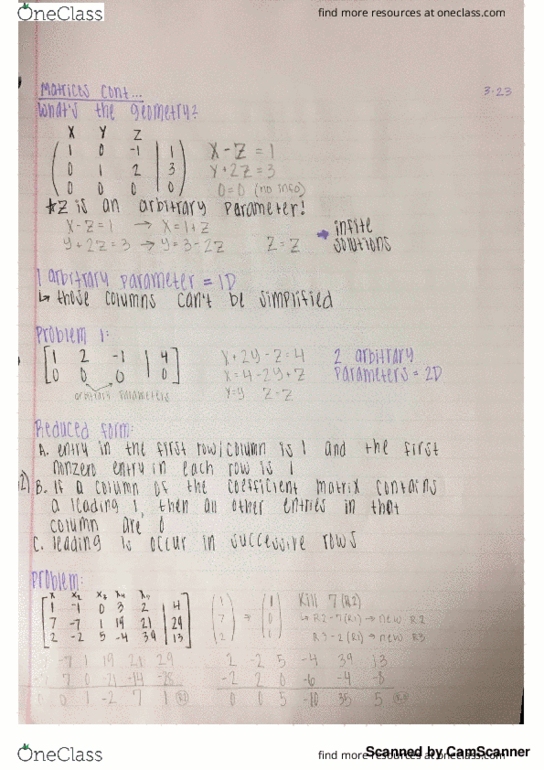 OneClass
find more resources at oneclass.com
3-23
Matrices cont...
What's the geometry?
X Y Z
1 0 -1 | 1
0 1 2 | 3
0 0 0 | 0
X-Z=1
Y+2Z=3
0=0 (no info)
*Z is an arbitrary parameter!
X-Z=1 → X=1+Z
Y+2Z=3 → Y=3-2Z Z=Z
infite
solutions
1 arbitrary parameter = 1D
↳ those columns can't be simplified
Problem 1:
1 2 -1 | 4
0 0 0 | 0
arbitrary parameters
X+2Y-Z=4
X=4-2Y+Z
Y=Y Z=Z
2 arbitrary
parameters = 2D
Reduced form:
A. entry in the first row/column is 1 and the first
nonzero entry in each row is 1
B. If a column of the coefficient matrix contains
a leading 1, then all other entries in that
column are 0
C. leading 1s occur in successive rows
Problem:
1 -1 0 3 2 | 4
7 -7 1 19 21 | 29
2 -2 5 -4 39 | 13
1 1
7 = 0
2 1
Kill 7 (R2)
↳ R2-7(R1) → new R2
R3-2(R1) → new R3
-7 1 19 21 29
7 0 -21 -14 -28
0 0 1 -2 7 1
2 -2 5 -4 39 13
-2 2 0 -6 -4 -8
0 0 5 -10 35 5
OneClass
find more resources at oneclass.com
Scanned by CamScanner